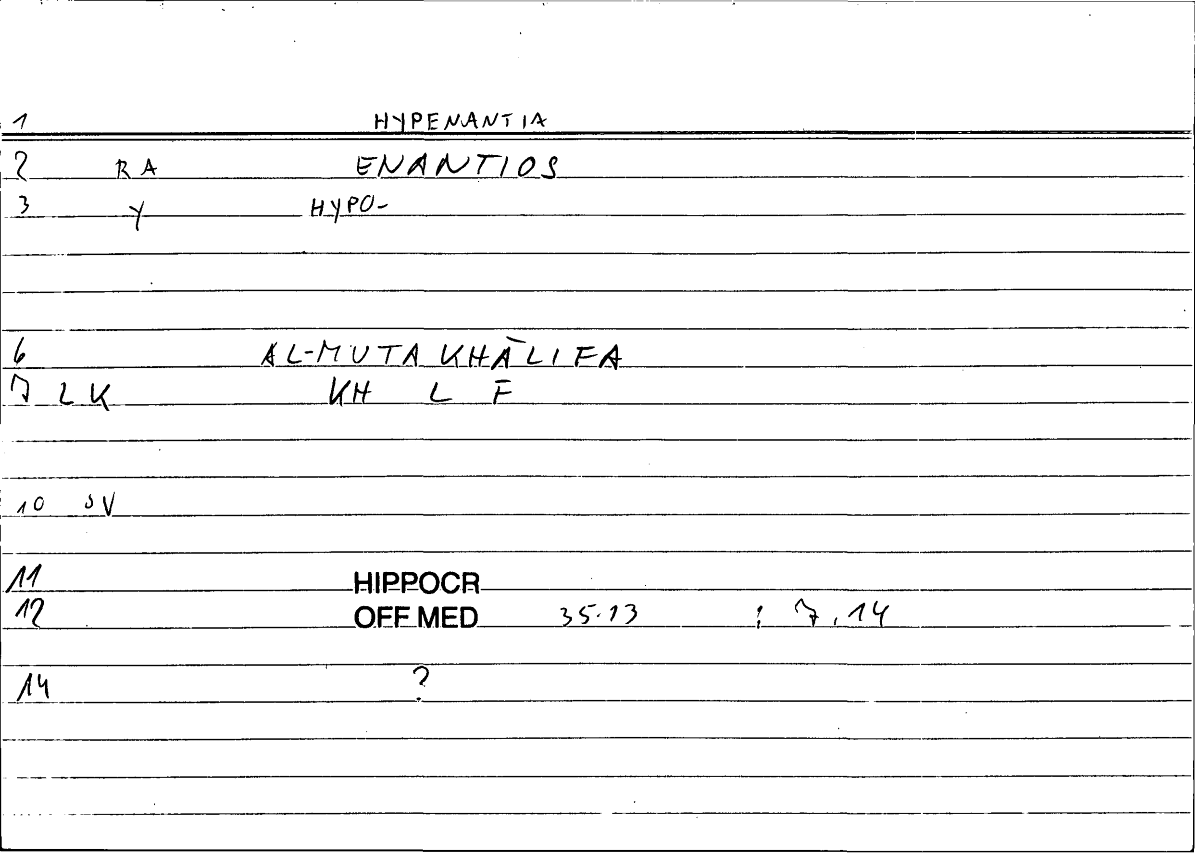 1 HYPENANTIA
2 RA ENANTIOS
3 Y HYPO-
6 AL-MUTAKHĀLIFA
7 LK KH L F
10 SV
11 HIPPOCR
12 OFF MED 35.13 : 7,14
14 ?